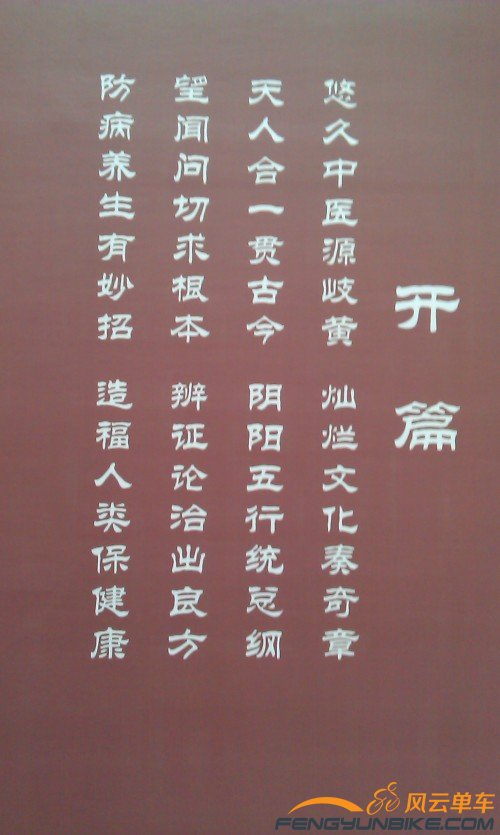 开篇
悠久中医源岐黄 灿烂文化奏奇章
天人合一贯古今 阴阳五行统总纲
望闻问切求根本 辨证论治出良方
防病养生有妙招 造福人类保健康
风云单车
FENGYUNBIKE.COM